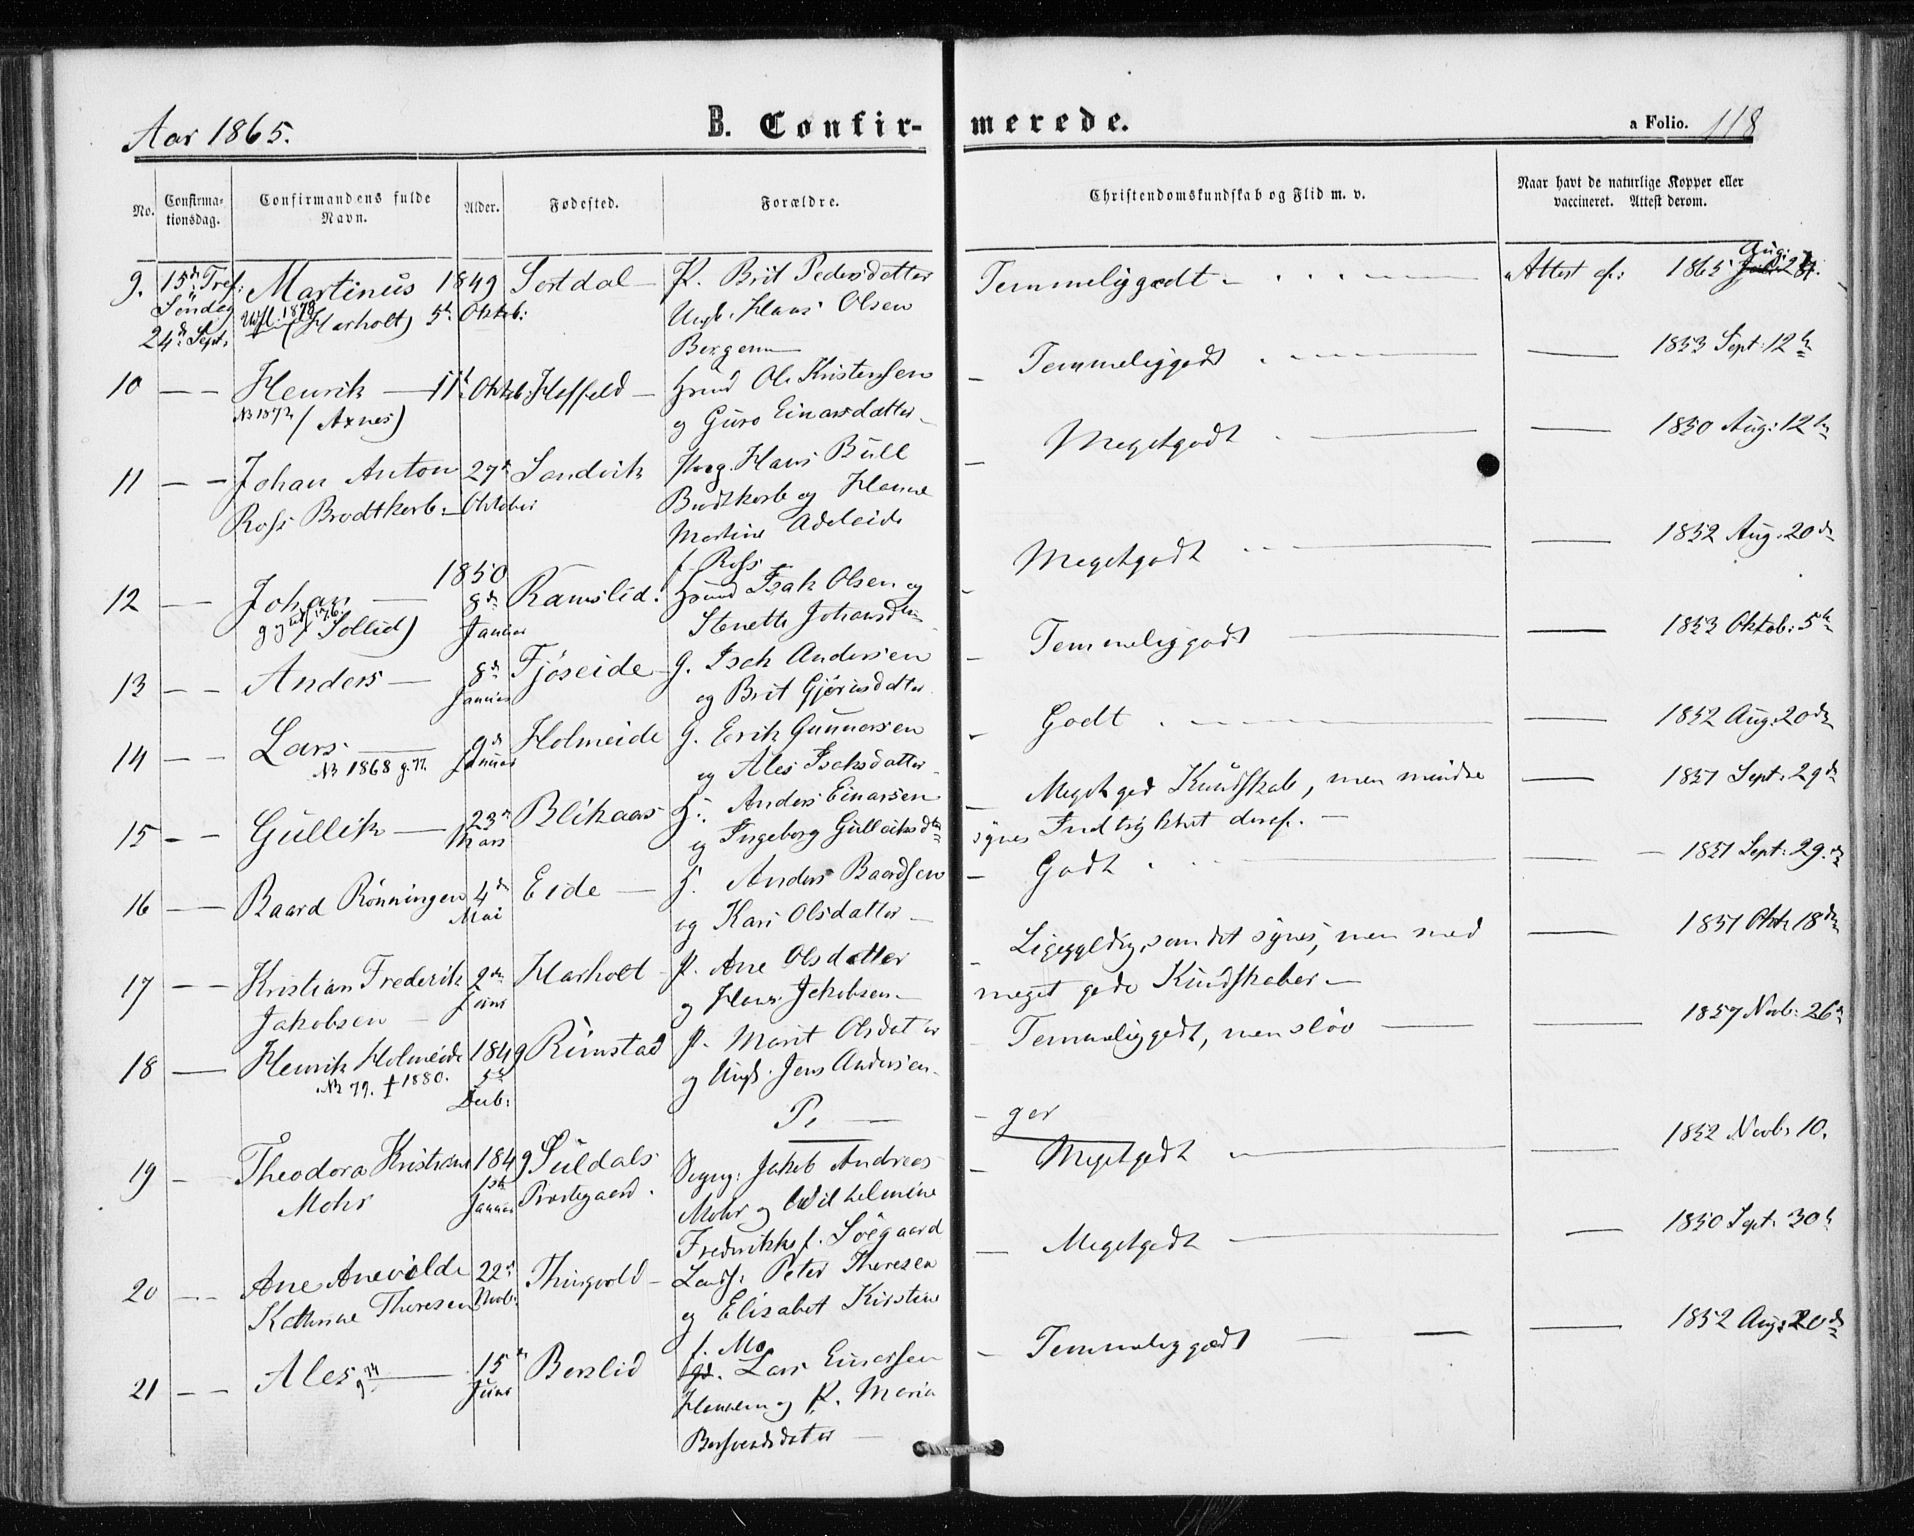 Aar 1865.
B. Confirmerede.
a Folio. 118
No.
Confirmationsdag.
Confirmandens fulde Navn.
Alder.
Fødested.
Forældre.
Christendomskundskab og Flid m. v.
Naar havt de naturlige Kopper eller vaccineret. Attest derom.
9. 15de Tref: Martinus 1849 Sortdal – P. Brit Pedersdatter Temmeliggodt Attest af: 1865 Aug: 24
Søndag 1878 (Harholt) 5te Oktob: Ungk. Hans Olsen
24de Sept. Bergem
10 – – Henrik – 11te Oktob: Hoffeld – Hmd Ole Kristensen – Temmeliggodt – 1853 Sept: 12te
NB 1872 (Axnes) og Guro Einarsdatter
11 – – Johan Anton 27de Sandvik Hans Bull – Megetgodt – 1850 Aug: 12te
Ross Brodtkorb – Oktober Brodtkorb og Hanne
Martine Adelaide
f. Ross
12 – Johan – 1850 8de Januar Ramslid. Hmd Isak Olsen og – Megetgodt – 1852 Aug: 20de
(Sollid) Stenette Johansdtr
13 – – Anders – 8de Januar Fjøseide – G. Isak Andersen – Temmeliggodt – 1853 Oktob: 5te
og Brit Gjørensdatter
14 – – Lars – 9de Januar Holmeide G. Erik Gunnarsen – Godt – 1852 Aug: 20de
NB 1868 g. 77. og Ales Isaksdatter
15 – – Gullik – 23de Mars Blikaas G. Anders Einarsen – Meget god Kundskab, men mindre – 1851 Sept: 29de
og Ingeborg Gulleiksdtr synes Indtrykket deraf. –
16 – – Baard Rønningen 4de Mai Eide – G. Anders Baardsen – Godt – 1851 Sept: 29de
og Kari Olsdatter –
17 – – Kristian Frederik 2den Juni Harholt – P. Ane Olsdatter – Ligegyldig, som det synes, men med – 1851 Okt: 18de
Jakobsen – og Hans Jakobsen – meget gode Kundskaber –
18 – Henrik Holmeide 1849 5te Decb: Rimstad P. Marit Olsdatter – Temmeliggodt, men sløv – 1857 Novb: 26de
NB 79. † 1880. og Ungk. Jens Andersen –
Pi – ger
19 – Theodora Kristiane 1849 Januar Suldals Jakob Andreas – Megetgodt – 1852 Novb: 10.
Mohr Præstegaard. Mohr og Wilhelmine
Frederikke f. Søegaard
20 – – Ane Anevilde 22de Novb: Thingvold – Peter Theresen – Megetgodt – 1850 Sept: 30te
Kathrine Theresen og Elisabet Kirstine
f. Mo
21 – – Ales – 15de Juni Berslid Lars Einarsen – Temmeliggodt – 1852 Aug: 20de
og P. Maria
Bersvendsdatter –